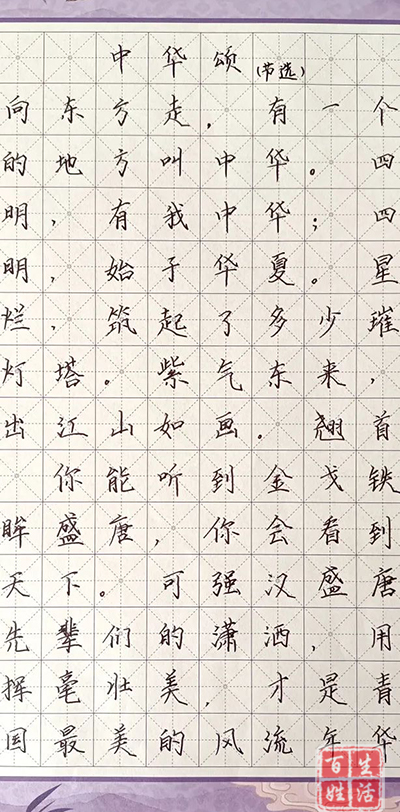 中华颂(节选)
向东方走，有一个
的地方叫中华。四
明，有我中华；四
明，始于华夏。星
烂，筑起了多少璀
灯塔。紫气东来，
出江山如画。翘首
你能听到金戈铁
眸盛唐，你会看到
天下。可强汉盛唐
先辈们的潇洒，用
挥毫壮美，才是青
国最美的风流年华
百姓生活